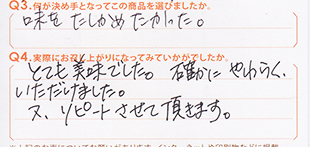 Q3.何が決め手となってこの商品を選びましたか。
味を たしかめたかった。
Q4.実際にお召し上がりになってみていかがでしたか。
とても美味でした。確かに やわらく、
いただけました。
又、リピートさせて頂きます。